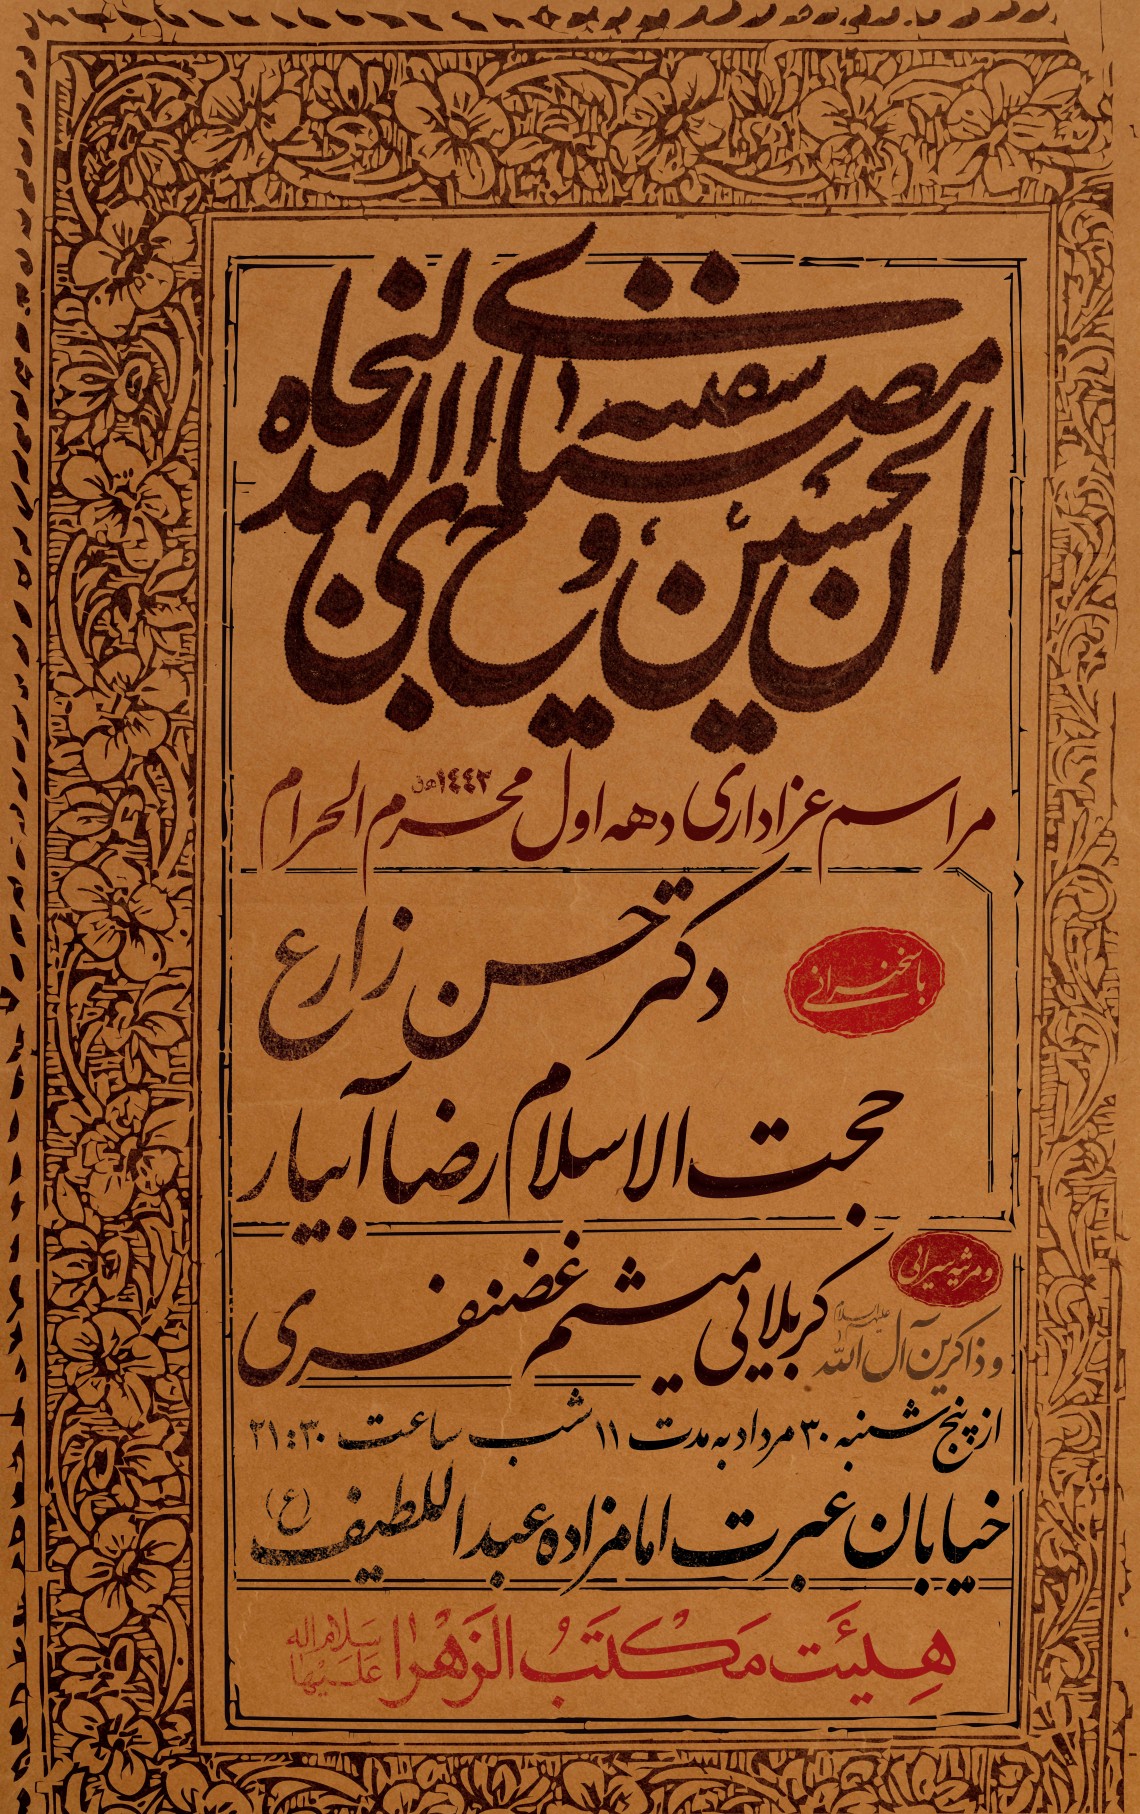 ان الحسین مصباح الهدی و سفینة النجاة
مراسم عزاداری دهه اول محرم الحرام ۱۴۴۲ هـ ق
با سخنرانی
دکتر حسن زارع
حجت الاسلام رضا آبیار
و مرثیه سرایی
کربلایی میثم غضنفری
و ذاکرین آل الله علیهم السلام
از پنج شنبه ۳۰ مرداد به مدت ۱۱ شب ساعت ۲۱:۳۰
خیابان عبرت امامزاده عبداللطیف (ع)
هیئت مکتب الزهرا سلام الله علیها